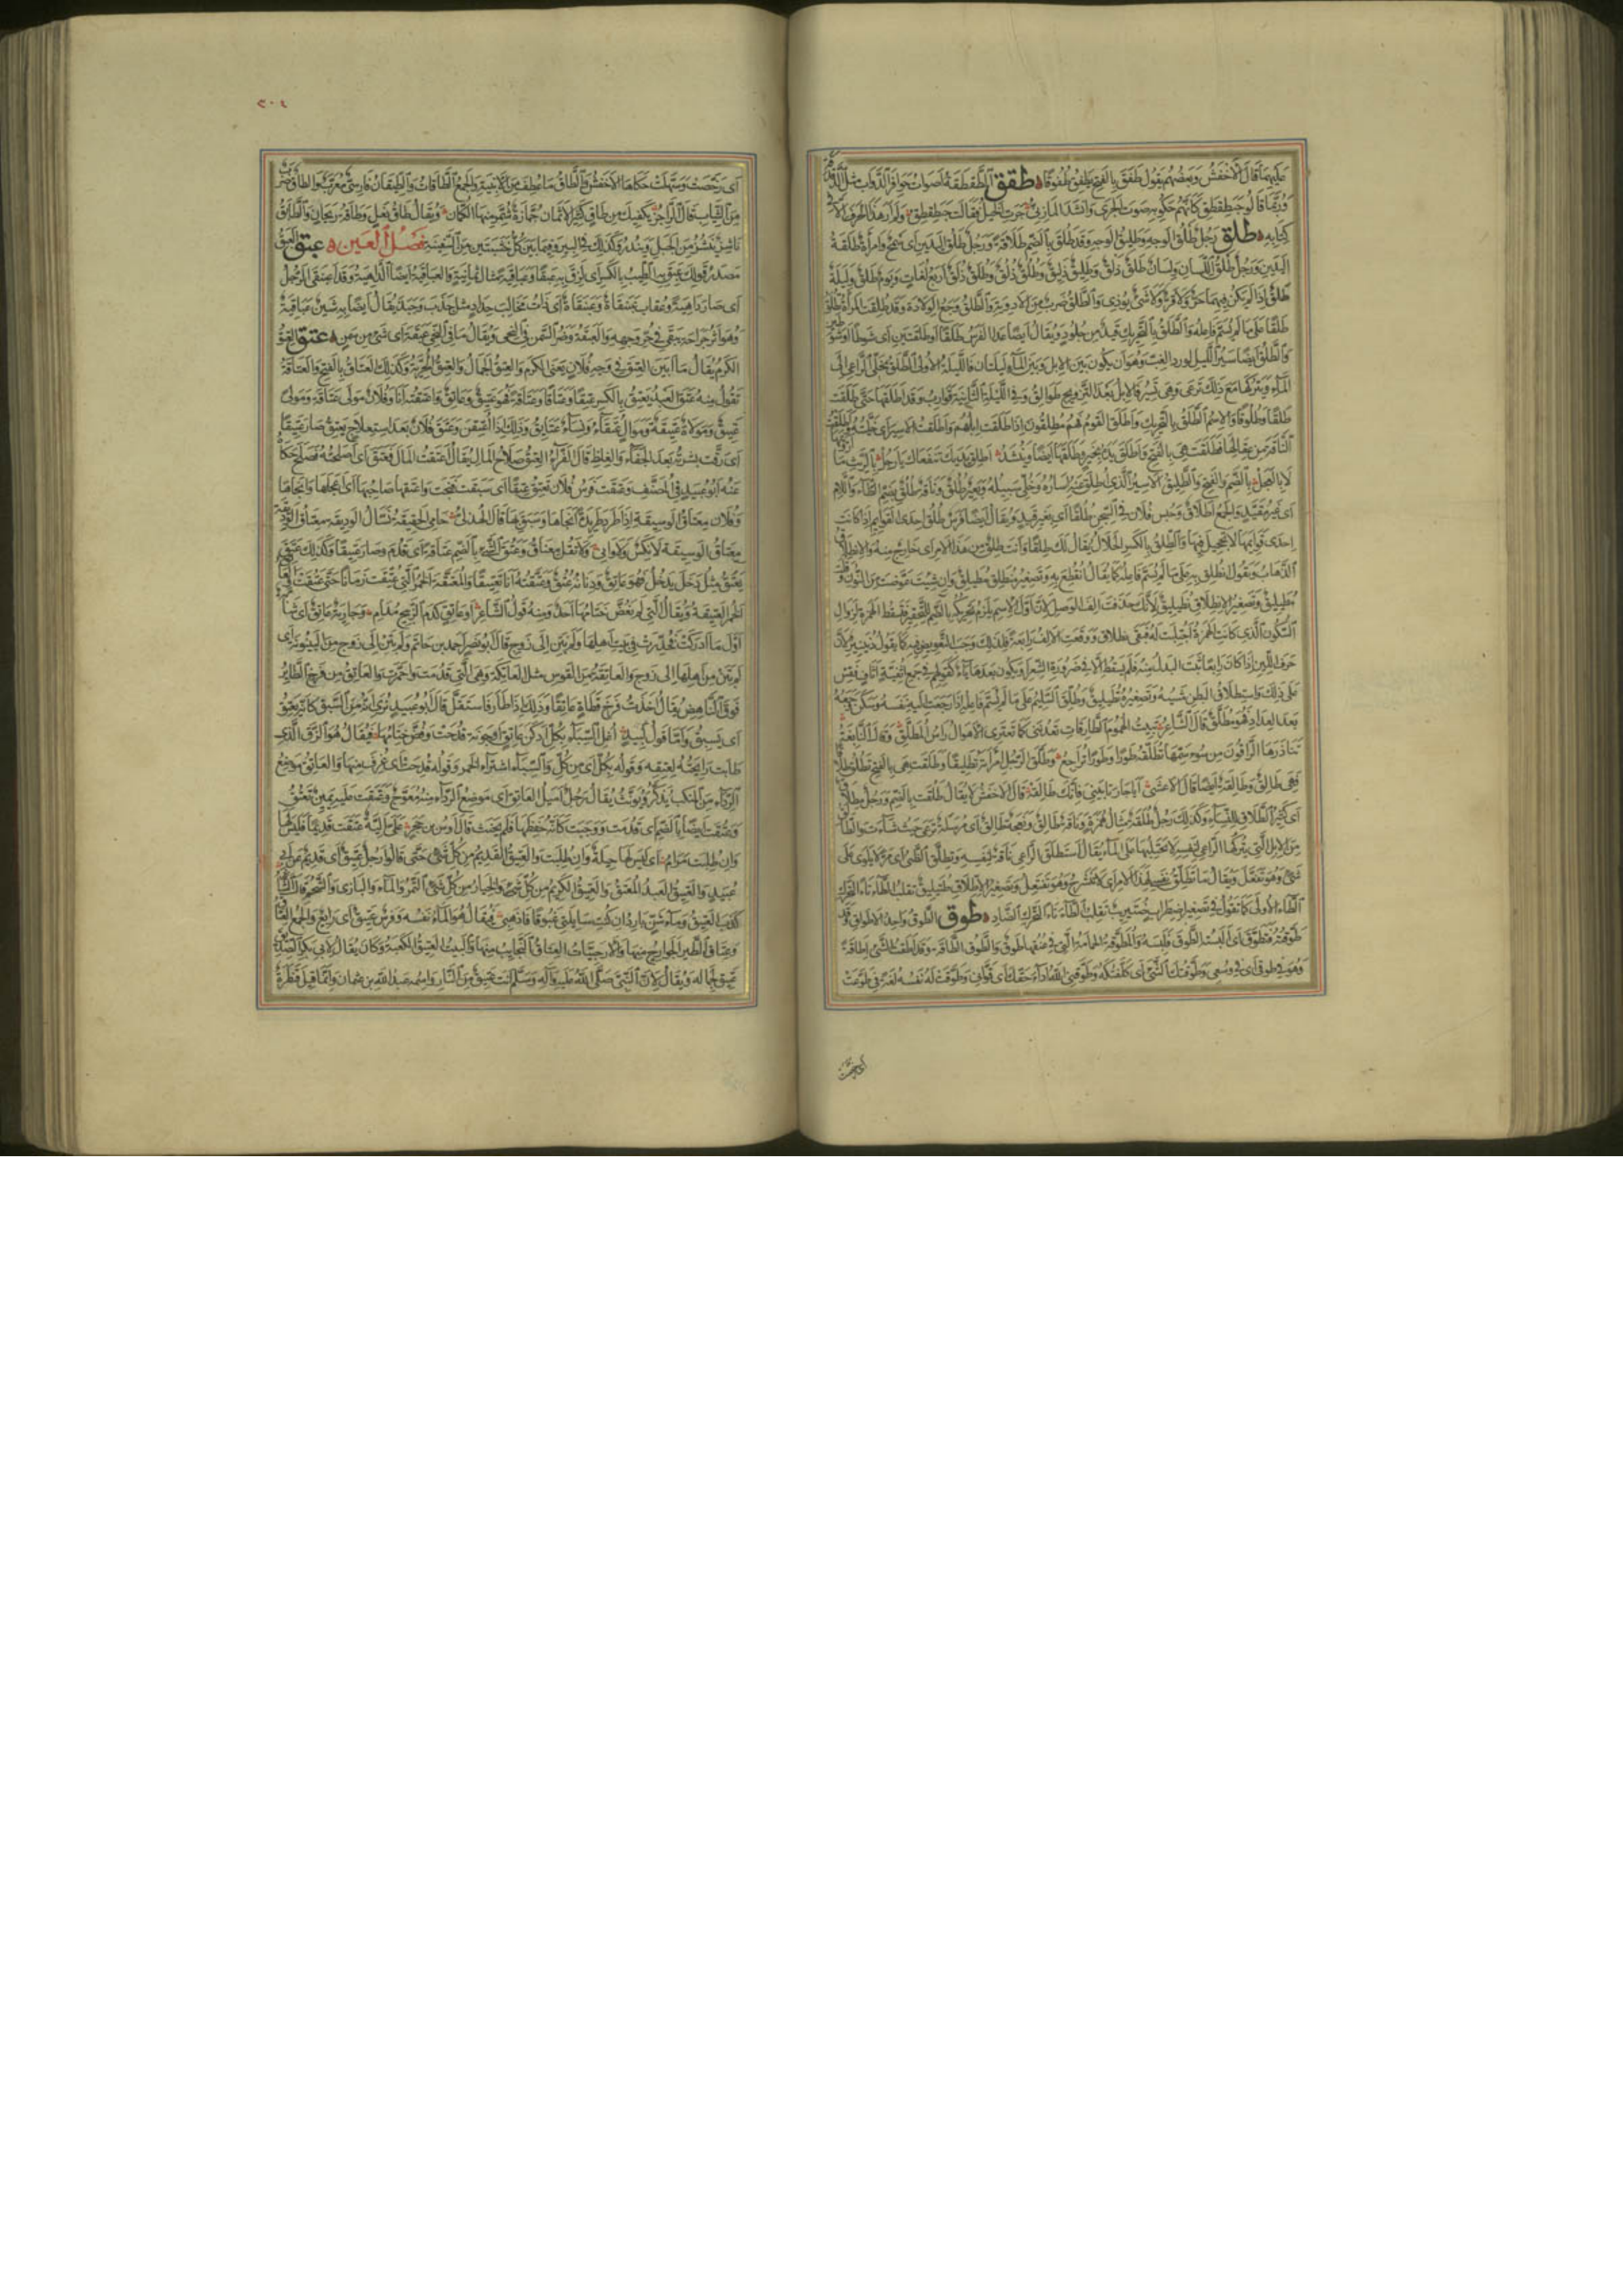 عليهما قال الأخفش وبعضهم يقول طفق بالفتح يطفق طفوقا طقق الطقطقة أصوات حوافر الدواب مثل الدقدقة
وربما قالوا حبطقطق كأنهم حكوا به صوت الجري وأنشد المازني جرت الخيل فقالت حبطقطق ولم أر هذا الحرف إلا في
كتابه طلق رجل طلق الوجه وطليق الوجه وقد طلق بالضم طلاقة ورجل طلق اليدين أي سمح وامرأة طلقة
اليدين ورجل طلق اللسان ولسان طلق ذلق وطليق ذليق وطلق ذلق وطلق ذلق أربع لغات ويوم طلق وليلة
طلق إذا لم يكن فيهما حر ولا قر ولا شيء يؤذي والطلق ضرب من الأدوية والطلق وجع الولادة وقد طلقت المرأة تطلق
طلقا على ما لم يسم فاعله والطلق بالتحريك قيد من جلود ويقال أيضا عدا الفرس طلقا أو طلقتين أي شوطا أو شوطين
والطلق أيضا سير الليل لورد الغب وهو أن يكون بين الإبل وبين الماء ليلتان فالليلة الأولى الطلق يخلي الراعي إلى
الماء ويتركها مع ذلك ترعى وهي تسير فالإبل بعد التزويج طوالق وفي الليلة الثانية قوارب وقد أطلقتها حتى طلقت
طلقا وطلوقا والاسم الطلق بالتحريك وأطلق القوم فهم مطلقون إذا طلقت إبلهم وأطلقت الأسير أي خليته وأطلقت
الناقة من عقالها فطلقت هي بالفتح وأطلق يده بخير وطلقها أيضا وينشد أطلق يديك تنفعاك يا رجل بالريث ما
لا بالعجل بالضم والفتح والطليق الأسير الذي أطلق عنه إساره وخلي سبيله وبعير طلق وناقة طلق بضم الطاء واللام
أي غير مقيد والجمع أطلاق وحبس فلان في السجن طلقا أي بغير قيد ويقال أيضا فرس طلق إحدى القوائم إذا كانت
إحدى قوائمها لا تحجيل فيها والطلق بالكسر الحلال يقال هو لك طلقا وأنت طلق من هذا الأمر أي خارج منه والانطلاق
الذهاب وتقول انطلق به على ما لم يسم فاعله كما يقال انقطع به وتصغير منطلق مطيلق وإن شئت عوضت من النون وقلت
مطيليق وتصغير الانطلاق نطيليق لأنك حذفت ألف الوصل لأن أول الاسم يلزم تحريكه بالضم للتحقير فتسقط الهمزة لزوال
السكون الذي كانت الهمزة اجتلبت له فبقي نطلاق ووقعت الألف رابعة فلذلك وجب التعويض فيه كما يقول دنينير لأن
حرف اللين إذا كان رابعا ثبت البدل منه فلم يسقط إلا في ضرورة الشعر أو يكون بعده ياء كقولهم في جمع أثفية أثاف فقس
على ذلك واستطلاق البطن مشيه وتصغيره تطيليق وطلق السليم على ما لم يسم فاعله إذا رجعت إليه نفسه وسكن وجعه
بعد العداد فهو مطلق قال الشاعر تبيت الهموم الطارقات تعدنني كما تعتري الأهوال رأس المطلق وقال النابغة
تناذرها الراقون من سوء سمها تطلقه طورا وطورا تراجع وطلق الرجل امرأته تطليقا وطلقت هي بالفتح تطلق طلاقا
فهي طالق وطالقة أيضا قال الأعشى أيا جارتا بيني فإنك طالقة قال الأخفش لا يقال طلقت بالضم ورجل مطلاق
أي كثير الطلاق للنساء وكذلك رجل طلقة مثال همزة وناقة طالق ونعجة طالق أي مرسلة ترعى حيث شاءت والطالق
من الإبل التي يتركها الراعي لنفسه لا يحتلبها على الماء يقال استطلق الراعي ناقة لنفسه وتطلق الظبي أي مر لا يلوي على
شيء وهو تفعل ويقال ما تطلق نفسي لهذا الأمر أي لا تنشرح وهو تفتعل وتصغير الاطلاق طتيليق تقلب الطاء تاء لتحرك
الطاء الأولى كما تقول في تصغير اضطراب ضتيريب تقلب الطاء تاء لتحرك الضاد طوق الطوق واحد الأطواق وقد
طوقته فتطوق أي ألبسته الطوق فلبسه والمطوقة الحمامة التي في عنقها طوق والطوق الطاقة وقد أطقت الشيء إطاقة
وهو في طوقي أي في وسعي وطوقتك الشيء أي كلفتكه وطوقني الله أداء حقك أي قواني وطوقت له نفسه لغة في طوعت
أي رخصت
٢٠٤
أي رخصت وسهلت حكاها الأخفش والطاق ما عطف من الأبنية والجمع الطاقات والطيقان فارسي معرب والطاق ضرب
من الثياب قال الراجز يكفيك من طاق كثير الأثمان جمازة شمر منها الكمان ويقال طاق نعل وطاقة ريحان والطائق
ناشز ينشز من الجبل ويندر وكذلك في البئر وفيما بين كل خشبتين من السفينة فصل العين عبق العبق
مصدر قولك عبق به الطيب بالكسر أي لزق به عبقا وعباقية مثال ثمانية والعباقية أيضا الداهية وقد اعبنقى الرجل
أي صار داهية وعقاب عبنقاة وعبنقاة أي ذات مخالب حداد مثل جذب وجبذ يقال أيضا به شين عباقية
وهو أثر جراحة تبقى في حر وجهه والعبقة وضر السمن في النحي ويقال ما في النحي عبقة أي شيء من سمن عتق العتق
الكرم يقال ما أبين العتق في وجه فلان يعني الكرم والعتق الجمال والعتق الحرية وكذلك العتاق بالفتح والعتاقة
تقول منه عتق العبد يعتق بالكسر عتقا وعتاقا وعتاقة فهو عتيق وعاتق وأعتقته أنا وفلان مولى عتاقة ومولى
عتيق ومولاة عتيقة وموال عتقاء ونساء عتائق وذلك إذا أعتقن وعتق فلان بعد استعلاج يعتق صار عتيقا
أي رقت بشرته بعد الجفاء والغلظ قال الفراء العتق صلاح المال يقال أعتقت المال فعتق أي أصلحته فصلح حكاه
عنه أبو عبيد في المصنف وعتقت فرس فلان تعتق عتقا أي سبقت فنجت وأعتقها صاحبها أي أعجلها وأنجاها
وفلان معتاق الوسيقة إذا طرد طريدة أنجاها وسبق بها قال الهذلي حامي الحقيقة نسال الوديقة معتاق الوسيقة
معتاق الوسيقة لا نكس ولا واني ولا تقل معناق وعتق الشيء بالضم عتاقة أي قدم وصار عتيقا وكذلك عتق
يعتق مثل دخل يدخل فهو عاتق ودنانير عتق وعتقته أنا تعتيقا والمعتقة الخمر التي عتقت زمانا حتى عتقت
الخمر العتيقة ويقال التي لم يفض ختامها أحد ومنه قول الشاعر أو عاتق كدم الذبيح مدام وجارية عاتق أي شابة
أول ما أدركت فخدرت في بيت أهلها ولم تبن إلى زوج قال أبو نصر أحمد بن حاتم ولم تبن إلى زوج من البينونة أي
لم تبن من أهلها إلى زوج والعاتقة من القوس مثل العاتكة وهي التي قدمت واحمرت والعاتق من فرخ الطائر
فوق الناهض يقال أخذت فرخ قطاة عاتقا وذلك إذا طار فاستقل قال أبو عبيد نرى أنه من السبق كأنه يعتق
أي يسبق وأما قول لبيد أغلي السباء بكل أدكن عاتق أو جونة قدحت وفض ختامها فيقال هو الزق الذي
طابت رائحته لعتقه وقوله بكل أي من كل والسباء اشتراء الخمر وقوله قدحت أي غرف منها والعاتق موضع
الرداء من المنكب يذكر ويؤنث يقال رجل أميل العاتق أي موضع الرداء منه معوج وعتقت عليه يمين تعتق
وعتقت أيضا بالضم أي قدمت ووجبت كأنه حفظها فلم يحنث قال أوس بن حجر علي ألية عتقت قديما فليس لها
وإن طلبت مرام أي ليس لها حيلة وإن طلبت والعتيق القديم من كل شيء حتى قالوا رجل عتيق أي قديم عن أبي
عبيد والعتيق العبد المعتق والعتيق الكريم من كل شيء والخيار من كل شيء التمر والماء والبازي والشحم قال الشاعر
كذب العتيق وماء شن بارد إن كنت سائلتي غبوقا فاذهبي فيقال هو الماء نفسه وفرس عتيق أي رائع والجمع العتاق
وعتاق الطير الجوارح منها والأرحبيات العتاق النجائب منها والبيت العتيق الكعبة وكان يقال لأبي بكر الصديق
عتيق لجماله ويقال لأن النبي صلى الله عليه وآله وسلم أنت عتيق من النار واسمه عبد الله بن عثمان وإنما قيل قنطرة